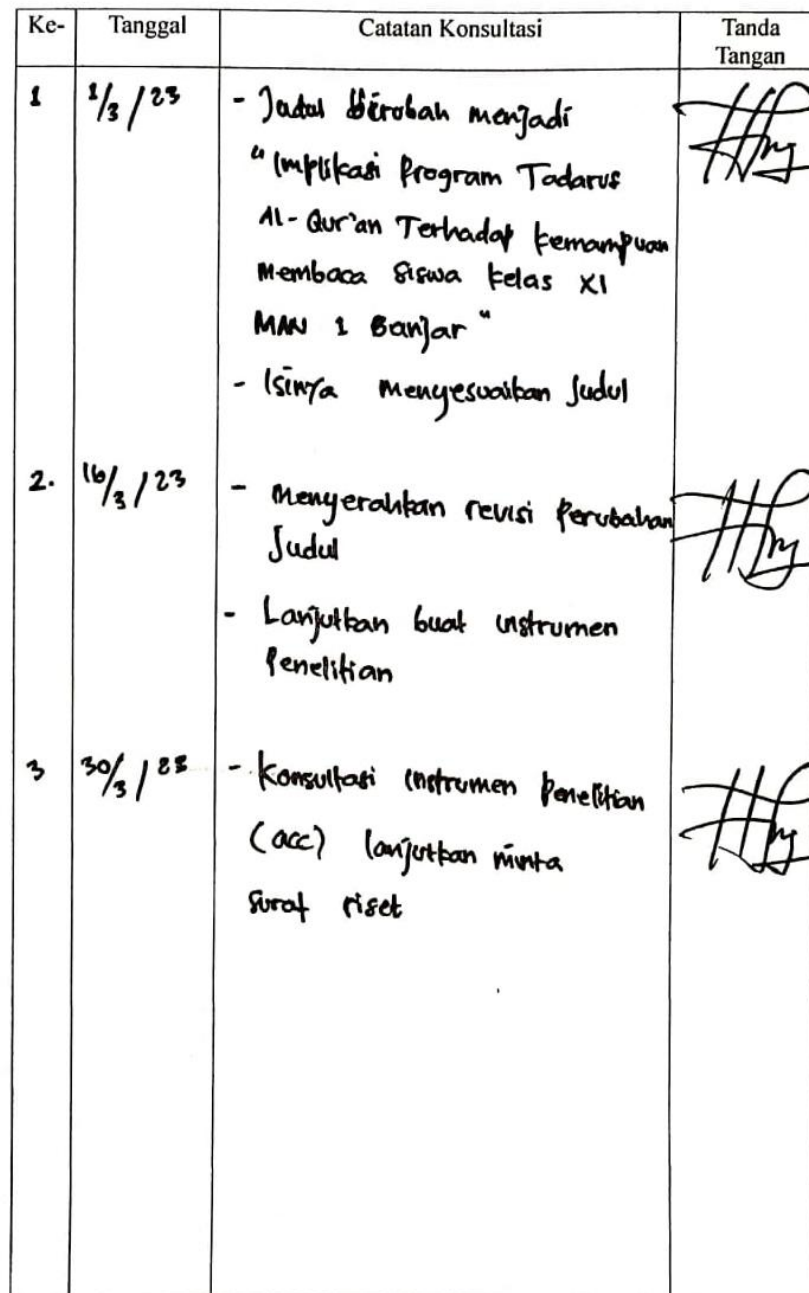 Ke- Tanggal Catatan Konsultasi Tanda
Tangan
1 1/3/23 - Judul Berubah menjadi
"Implikasi Program Tadarus
Al-Qur'an Terhadap kemampuan
Membaca Siswa kelas XI
MAN 1 Banjar"
- Isinya menyesuaikan Judul
2. 16/3/23 - Menyerahkan revisi Perubahan
Judul
- Lanjutkan buat instrumen
Penelitian
3 30/3/23 - Konsultasi instrumen Penelitian
(acc) lanjutkan minta
Surat riset